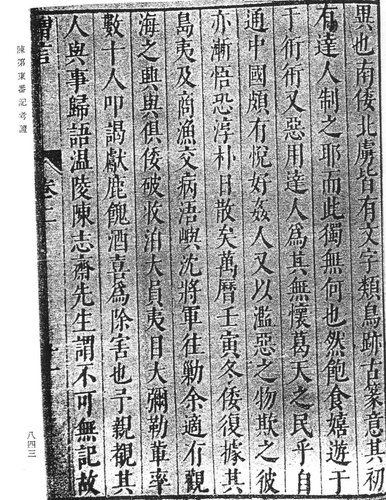 異也南倭北虜皆有文字類鳥跡古篆意其初
有達人制之耶而此獨無何也然飽食嬉遊于
于衎衎又惡用達人為其無懷葛天之民乎自
通中國頗有悅好姦人又以濫惡之物欺之彼
亦漸悟恐淳朴日散矣萬曆壬寅冬倭復據其
島夷及商漁交病浯嶼沈將軍往勦余適有觀
海之興與俱倭破收泊大員夷目大彌勒輩率
數十人叩謁獻鹿餽酒喜為除害也予親覩其
人與事歸語温陵陳志齋先生謂不可無記故
言 卷
陳第東番記考證
八四三